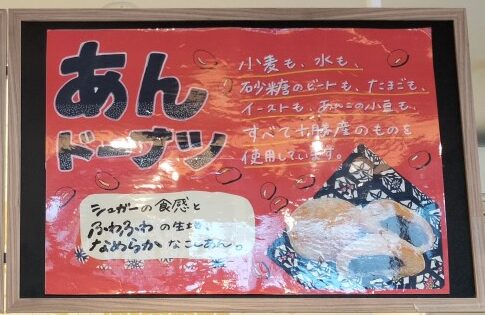 あん
ドーナツ
小麦も、水も、
砂糖のビートも、たまごも、
イーストも、あんこの小豆も、
すべて十勝産のものを
使用しています。
シュガーの食感と
ふわふわの生地、
なめらかなこしあん。